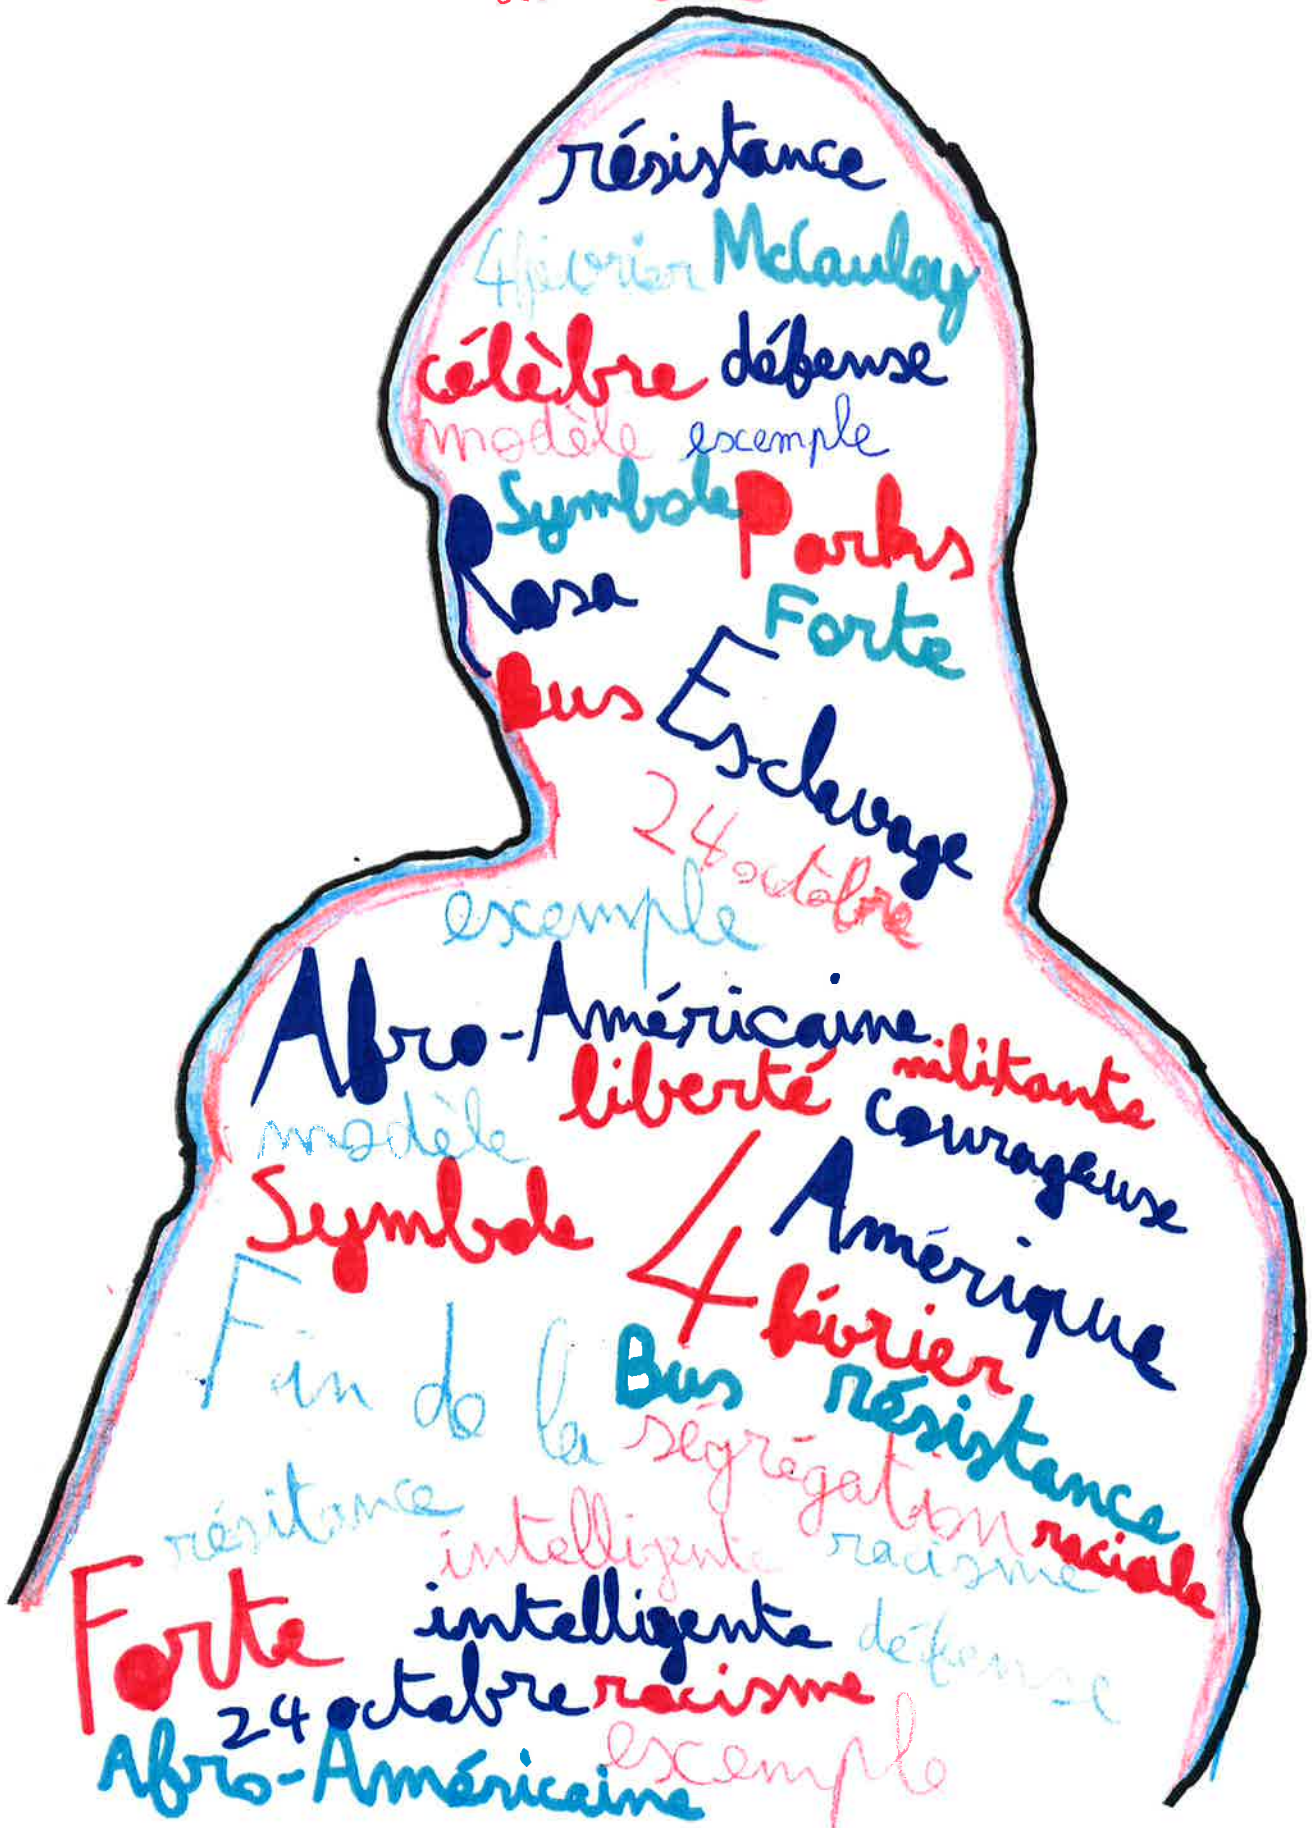 résistance
4 février McCauley
célèbre défense
modèle exemple
Symbole Parks
Rosa
Forte
Bus Esclavage
24 octobre
exemple
Afro-Américaine
liberté militante
modèle courageuse
Symbole Amérique
4 février
Fin de la Bus résistance
ségrégation
résitance intelligente racisme raciale
Forte intelligente défense
24 octobre racisme
Afro-Américaine exemple